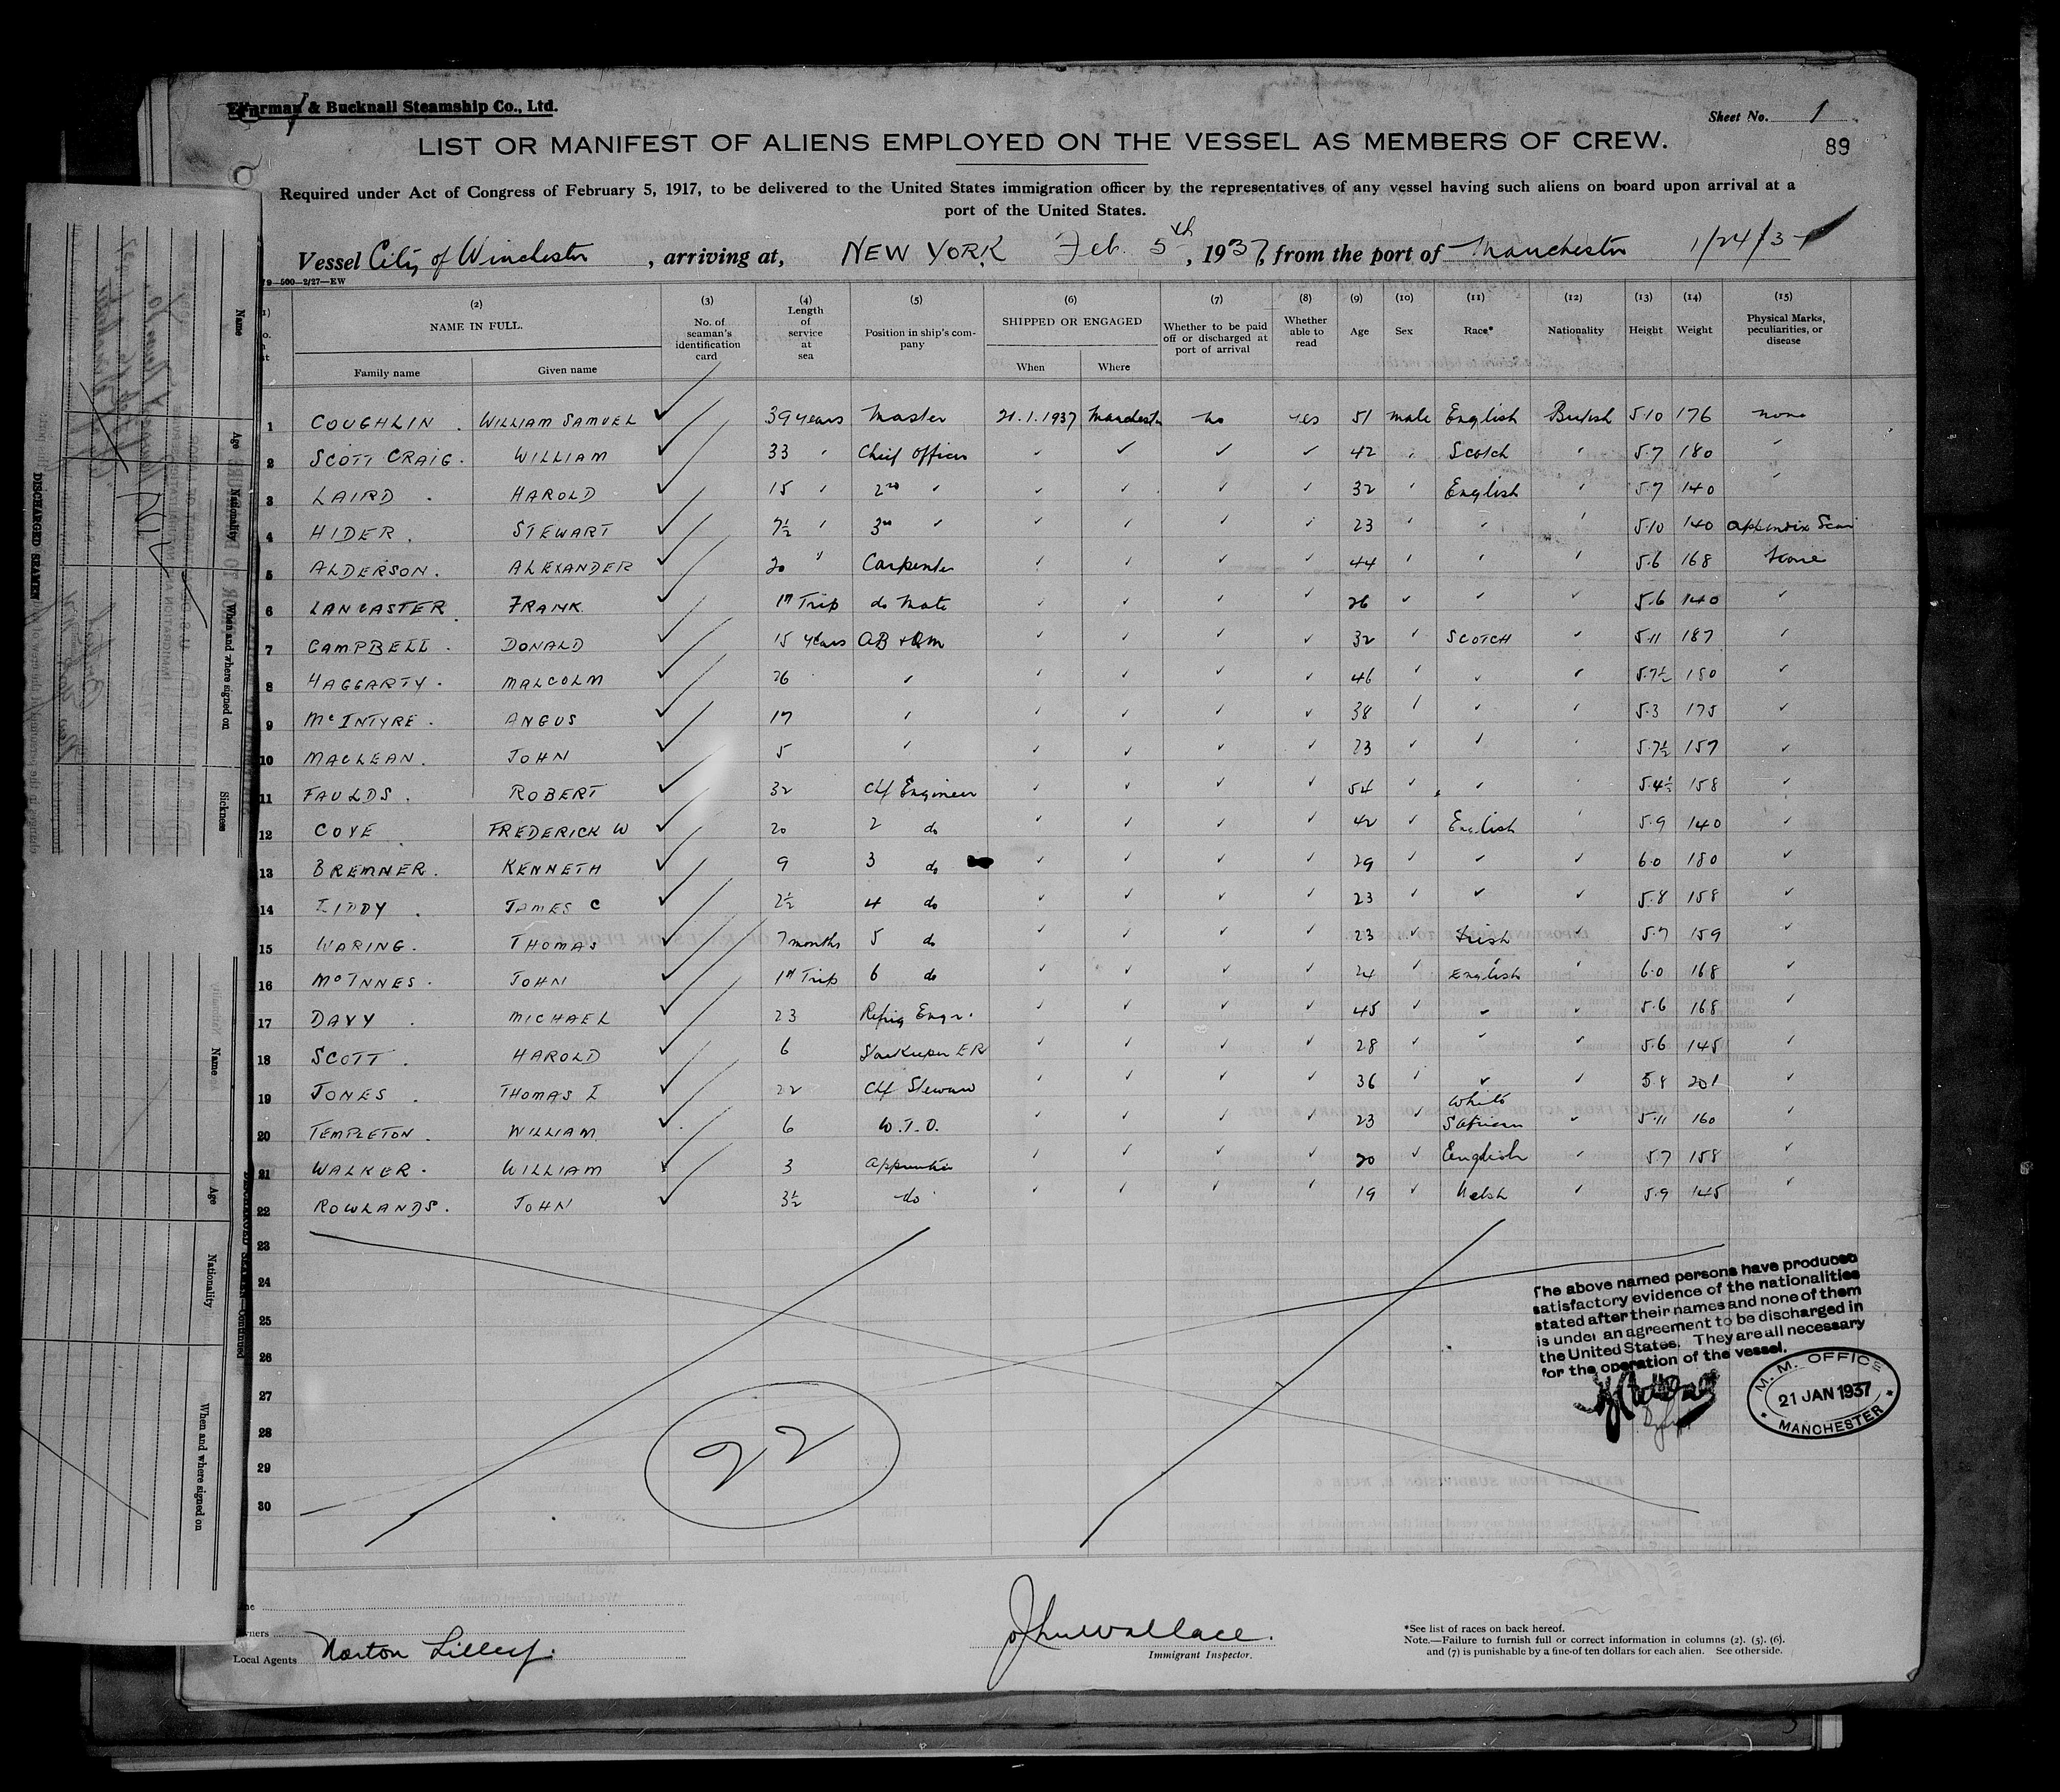 & Bucknall Steamship Co., Ltd.
Sheet No. 1
89
LIST OR MANIFEST OF ALIENS EMPLOYED ON THE VESSEL AS MEMBERS OF CREW.
Required under Act of Congress of February 5, 1917, to be delivered to the United States immigration officer by the representatives of any vessel having such aliens on board upon arrival at a
port of the United States.
Vessel City of Winchester, arriving at, NEW YORK Feb. 5th, 1937, from the port of Manchester 1/24/37
(2) (3) (4) (5) (6) (7) (8) (9) (10) (11) (12) (13) (14) (15)
NAME IN FULL. No. of seaman's identification card Length of service at sea Position in ship's company SHIPPED OR ENGAGED Whether to be paid off or discharged at port of arrival Whether able to read Age Sex Race* Nationality Height Weight Physical Marks, peculiarities, or disease
Family name Given name When Where
1 COUGHLIN. WILLIAM SAMUEL ✓ 39 years Master 21.1.1937 Manchester no yes 51 male English British 5.10 176 none
2 SCOTT CRAIG. WILLIAM ✓ 33 Chief Officer ✓ ✓ ✓ ✓ 42 Scotch 5.7 180
3 LAIRD. HAROLD ✓ 15 2nd ✓ ✓ ✓ ✓ 32 English 5.7 140
4 HIDER. STEWART ✓ 7½ 3rd ✓ ✓ ✓ ✓ 23 5.10 140 appendix Scar
5 ALDERSON. ALEXANDER ✓ 20 Carpenter ✓ ✓ ✓ ✓ 44 5.6 168 None
6 LANCASTER. FRANK ✓ 1st Trip do Mate ✓ ✓ ✓ ✓ 26 ✓ ✓ ✓ 5.6 140 ✓
7 CAMPBELL. DONALD ✓ 15 years AB + QM ✓ ✓ ✓ ✓ 32 SCOTCH ✓ 5.11 187 ✓
8 HAGGARTY. MALCOLM ✓ 26 ✓ ✓ ✓ ✓ ✓ 46 ✓ ✓ ✓ 5.7½ 180 ✓
9 McINTYRE. ANGUS ✓ 17 ✓ ✓ ✓ ✓ 38 ✓ ✓ 5.3 175 ✓
10 MACLEAN. JOHN ✓ 5 ✓ ✓ ✓ ✓ 23 ✓ ✓ 5.7½ 157 ✓
11 FAULDS. ROBERT ✓ 32 Chf Engineer ✓ ✓ ✓ ✓ 54 ✓ ✓ 5.4½ 158 ✓
12 COYE FREDERICK W ✓ 20 2 do ✓ ✓ ✓ ✓ 42 ✓ English 5.9 140 ✓
13 BREMNER. KENNETH ✓ 9 3 do ✓ ✓ ✓ ✓ 29 ✓ ✓ ✓ 6.0 180 ✓
14 JAMES C ✓ 2½ 4 do ✓ ✓ ✓ ✓ 23 ✓ ✓ ✓ 5.8 158 ✓
15 WARING. THOMAS ✓ 7 months 5 do ✓ ✓ ✓ ✓ 23 ✓ Irish ✓ 5.7 159 ✓
16 McINNES. JOHN ✓ 1st Trip 6 do ✓ ✓ ✓ ✓ 24 ✓ English ✓ 6.0 168 ✓
17 DAVY. MICHAEL ✓ 23 Refrig Engr. ✓ ✓ ✓ ✓ 45 ✓ ✓ ✓ 5.6 168 ✓
18 SCOTT. HAROLD ✓ 6 Storekeeper ER ✓ ✓ ✓ ✓ 28 ✓ ✓ ✓ 5.6 145 ✓
19 JONES. THOMAS I ✓ 22 Chf Steward ✓ ✓ ✓ ✓ 36 ✓ ✓ ✓ 5.8 201 ✓
20 TEMPLETON. WILLIAM ✓ 6 W.T.O. ✓ ✓ ✓ ✓ 23 ✓ White S African ✓ 5.11 160 ✓
21 WALKER. WILLIAM ✓ 3 Apprentice ✓ ✓ ✓ ✓ 20 ✓ English ✓ 5.7 158 ✓
22 ROWLANDS. JOHN ✓ 3½ do ✓ ✓ ✓ ✓ 19 ✓ Welsh ✓ 5.9 145 ✓
23
24
25
26
27
28
29
30
22
The above named persons have produced
satisfactory evidence of the nationalities
stated after their names and none of them
is under an agreement to be discharged in
the United States. They are all necessary
for the operation of the vessel.
M. M. OFFICE
21 JAN 1937
MANCHESTER
Local Agents Norton Lilly
John Wallace.
Immigrant Inspector.
*See list of races on back hereof.
Note.—Failure to furnish full or correct information in columns (2), (5), (6),
and (7) is punishable by a fine of ten dollars for each alien. See other side.
Name
Age
Nationality
When and where signed on
Sickness
DISCHARGED SEAMEN
Name
Age
Nationality
When and where signed on